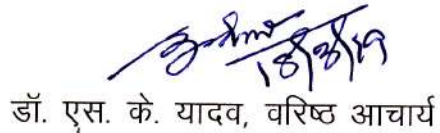 18/3/19
डॉ. एस. के. यादव, वरिष्ठ आचार्य